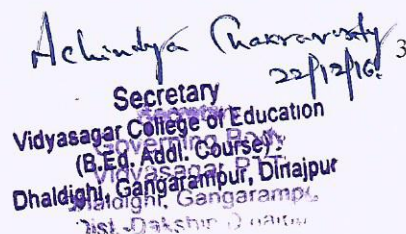 Achindya Chakravorty
22/12/16.
3
Secretary
Vidyasagar College of Education
(B.Ed. Addl. Course)
Dhaldighi, Gangarampur, Dinajpur
Governing Body
Vidyasagar P.T.T.I.
Dhaldighi, Gangarampu
Dist.-Dakshin Dinajpu